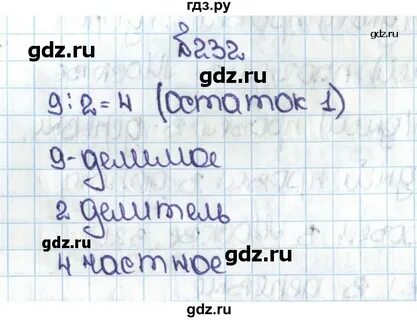 гдз.ру
gdz.ru gdz.ru
№232
gdz.ru
9:2=4 (остаток 1)
gdz.ru gdz.ru
9-делимое
gdz.ru
2 делитель
gdz.ru gdz.ru
4 частное
gdz.ru